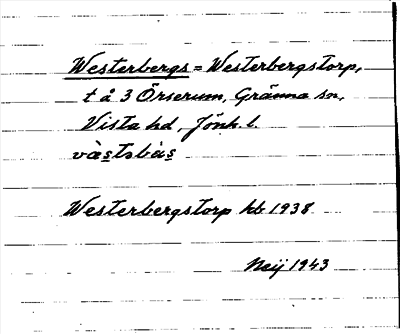 Westerbergs = Westerbergstorp,
t å 3 Örserum, Gränna sn,
Vista hd, Jönk. l.
västsbàs
Westerbergstorp kb 1938
Neij 1943